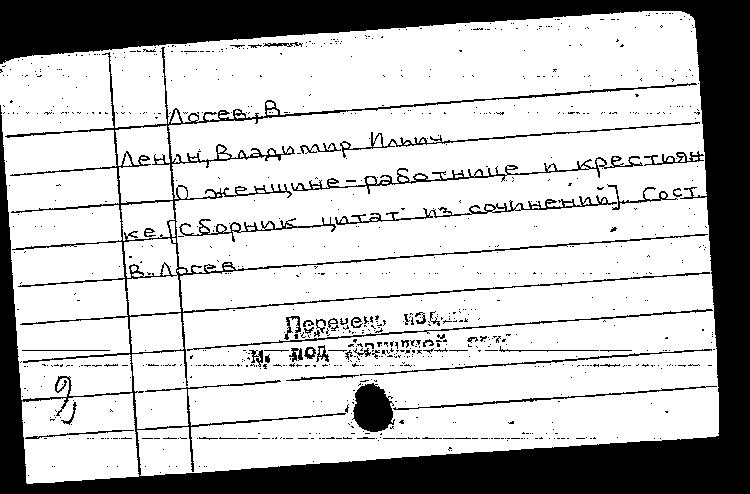 Лосев, В.
Ленин, Владимир Ильич.
О женщине-работнице и крестьян
ке. [Сборник цитат из сочинений]. Сост.
В. Лосев.
Перечень изд.
под фамилией
2